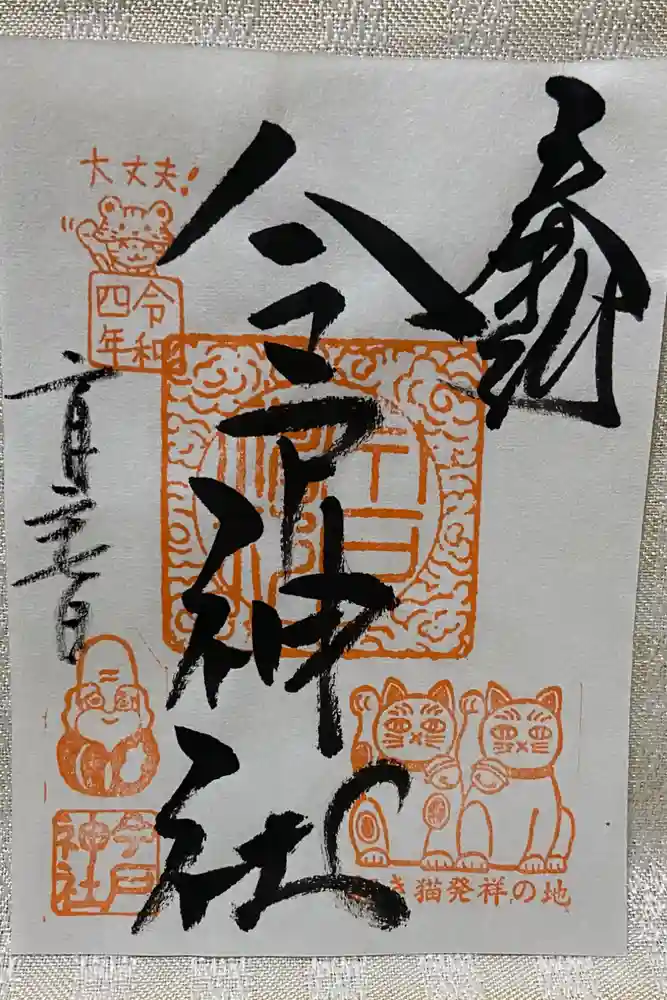 奉拝
今戸神社
大丈夫!
令和
四年
今戸
神社
招き猫発祥の地